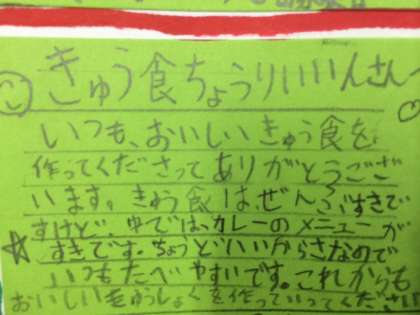 きゅう食ちょうりいいんさんへ
いつも、おいしいきゅう食を
作ってくださってありがとうござ
います。きゅう食はぜんぶすきで
すけど、中では、カレーのメニューが
すきです。ちょうどいいからさなので
いつもたべやすいです。これからも
おいしいきゅうしょくを作っていってください